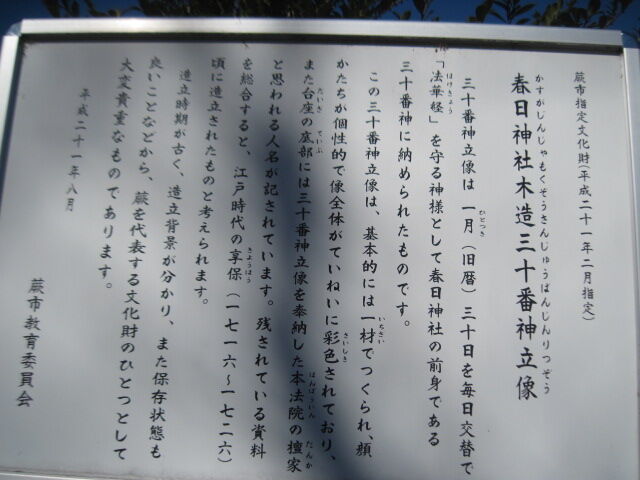 蕨市指定文化財(平成二十一年二月指定)
かすがじんじゃもくぞうさんじゅうばんじんりつぞう
春日神社木造三十番神立像
三十番神立像は 一月(旧暦)三十日を毎日交替で
ひとつき
「法華経」を守る神様として春日神社の前身である
ほけきょう
三十番神に納められたものです。
この三十番神立像は、基本的には一材でつくられ、顔
いちざい
かたちが個性的で像全体がていねいに彩色されており、
さいしき
また台座の底部には三十番神立像を奉納した本法院の檀家
だいざ ていぶ ほんぽういん だんか
と思われる人名が記されています。残されている資料
を総合すると、江戸時代の享保(一七一六~一七二六)
きょうほう
頃に造立されたものと考えられます。
造立時期が古く、造立背景が分かり、また保存状態も
良いことなどから、蕨を代表する文化財のひとつとして
大変貴重なものであります。
平成二十一年八月
蕨市教育委員会